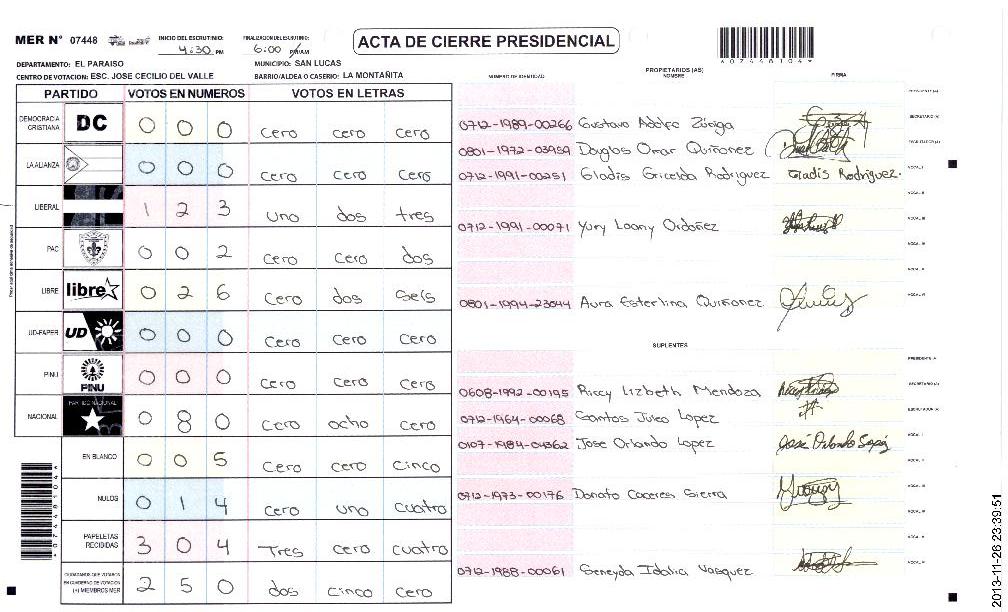 MER N° 07448 INICIO DEL ESCRUTINIO: 4:30 PM FINALIZACION DEL ESCRUTINIO: 6:00 P/AM
ACTA DE CIERRE PRESIDENCIAL
*07448104*
DEPARTAMENTO: EL PARAISO MUNICIPIO: SAN LUCAS
CENTRO DE VOTACION: ESC. JOSE CECILIO DEL VALLE BARRIO/ALDEA O CASERIO: LA MONTAÑITA
PARTIDO VOTOS EN NUMEROS VOTOS EN LETRAS
DEMOCRACIA CRISTIANA DC 0 0 0 cero cero cero
LA ALIANZA 0 0 0 cero cero cero
LIBERAL 1 2 3 uno dos tres
PAC 0 0 2 cero cero dos
LIBRE libre 0 2 6 cero dos seis
UD-FAPER UD 0 0 0 cero cero cero
PINU PINU 0 0 0 cero cero cero
NACIONAL PARTIDO NACIONAL 0 8 0 cero ocho cero
EN BLANCO 0 0 5 cero cero cinco
NULOS 0 1 4 cero uno cuatro
PAPELETAS RECIBIDAS 3 0 4 Tres cero cuatro
CIUDADANOS QUE VOTARON EN CUADERNO DE VOTACION (+) MIEMBROS MER 2 5 0 dos cinco cero
PROPIETARIOS (AS)
NUMERO DE IDENTIDAD NOMBRE FIRMA
0712-1989-00266 Gustavo Adolfo Zúniga
0801-1972-03959 Douglas Omar Quiñonez
0712-1991-00251 Gladis Gricelda Rodriguez Gladis Rodriguez.
0712-1991-00071 Yury Loany Ordoñez
0801-1994-23044 Aura Esterlina Quiñonez
SUPLENTES
0608-1992-00195 Riccy Lizbeth Mendoza
0712-1964-00068 Santos Julio Lopez
0107-1984-04362 Jose Orlando Lopez José Orlando
0712-1973-00176 Donato Caceres Sierra
0712-1988-00061 Seneyda Idalia Vasquez
*07448104*
2013-11-26 23:39:51